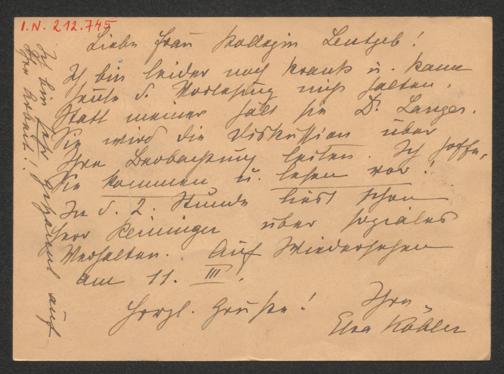 I.N. 212.745
Liebe Frau Kollegin Leutgeb!
Ich bin leider noch krank u. kann
heute d. Vorlesung nicht halten.
Statt meiner hält sie D. Langer.
Sie wird die Diskussion über
Ihre Beobachtung leiten. Ich hoffe,
Sie kommen u. lesen vor.
In d. 2. Stunde liest schon
Herr Reininger über soziales
Verhalten. Auf Wiedersehen
am 11. III.!
Herzl. Grüsse! Ihre
Elsa Köhler
Ich bin sehr gespannt auf
Ihre Arbeit!